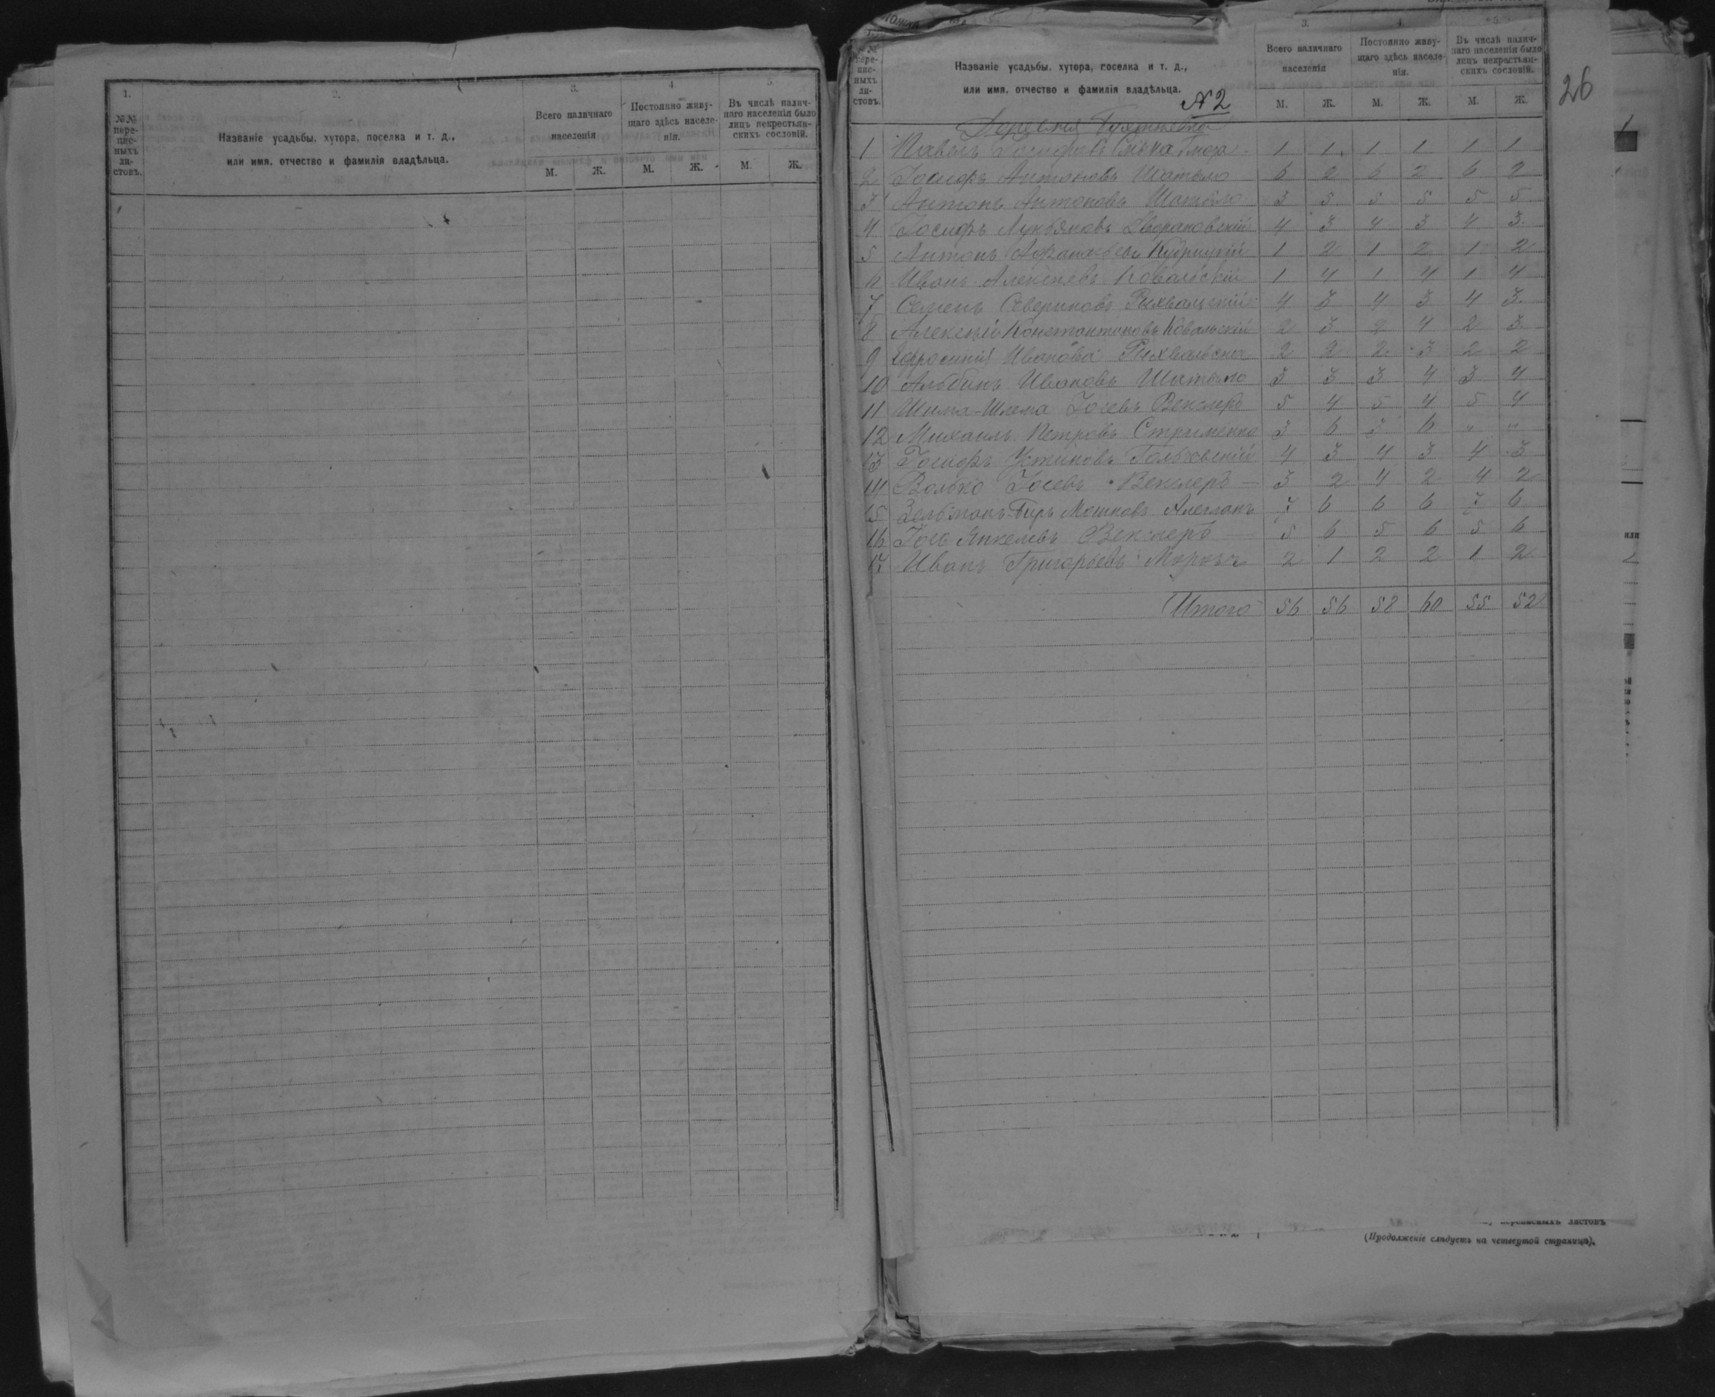 1. 2. 3. 4. 5.
№№ пере-
пис-
ныхъ
ли-
стовъ.
Названіе усадьбы, хутора, поселка и т. д.,
или имя, отчество и фамилія владѣльца.
Всего наличнаго
населенія
Постоянно живу-
щаго здѣсь населе-
нія.
Въ числѣ налич-
наго населенія было
лицъ некрестьян-
скихъ сословій.
М. Ж. М. Ж. М. Ж.
26
№
пере-
пис-
ныхъ
ли-
стовъ.
Названіе усадьбы, хутора, поселка и т. д.,
или имя, отчество и фамилія владѣльца.
Всего наличнаго
населенія
Постоянно живу-
щаго здѣсь населе-
нія.
Въ числѣ налич-
наго населенія было
лицъ некрестьян-
скихъ сословій.
М. Ж. М. Ж. М. Ж.
№ 2
Деревня
1 Іосифовъ 1 1 1 1 1 1
2 Іосифъ Антоновъ Шатыло 6 2 6 2 6 2
3 Антонъ Антоновъ Шатыло 3 5 5 5 5 5
4 Іосифъ Лукьяновъ 4 3 4 3 4 3
5 Антонъ 1 2 1 2 1 2
Иванъ Алексѣевъ Ковальскій 1 4 1 4 1 4
7 Семенъ Севериновъ Рихвальскій 4 3 4 3 4 3
8 Алексѣй Константиновъ Ковальскій 2 3 2 4 2 3
9 Иванова 2 2 2 3 2 2
10 Альбинъ Ивановъ Шатыло 3 3 3 4 3 4
11 Шлема Іосевъ Векслеръ 5 4 5 4 5 4
12 Михаилъ Петровъ 3 6 6 " "
13 Іосифъ 4 3 4 3 4 3
14 Волько Іосевъ Векслеръ 3 2 4 2 4 2
15 Мошковъ 7 6 6 6 7 6
16 Янкелевъ Векслеръ 5 6 5 6 5 6
17 Иванъ Григорьевъ 2 1 2 2 1 2
Итого 56 56 58 60 55 52
листовъ
(Продолженіе слѣдуетъ на четвертой страницѣ).